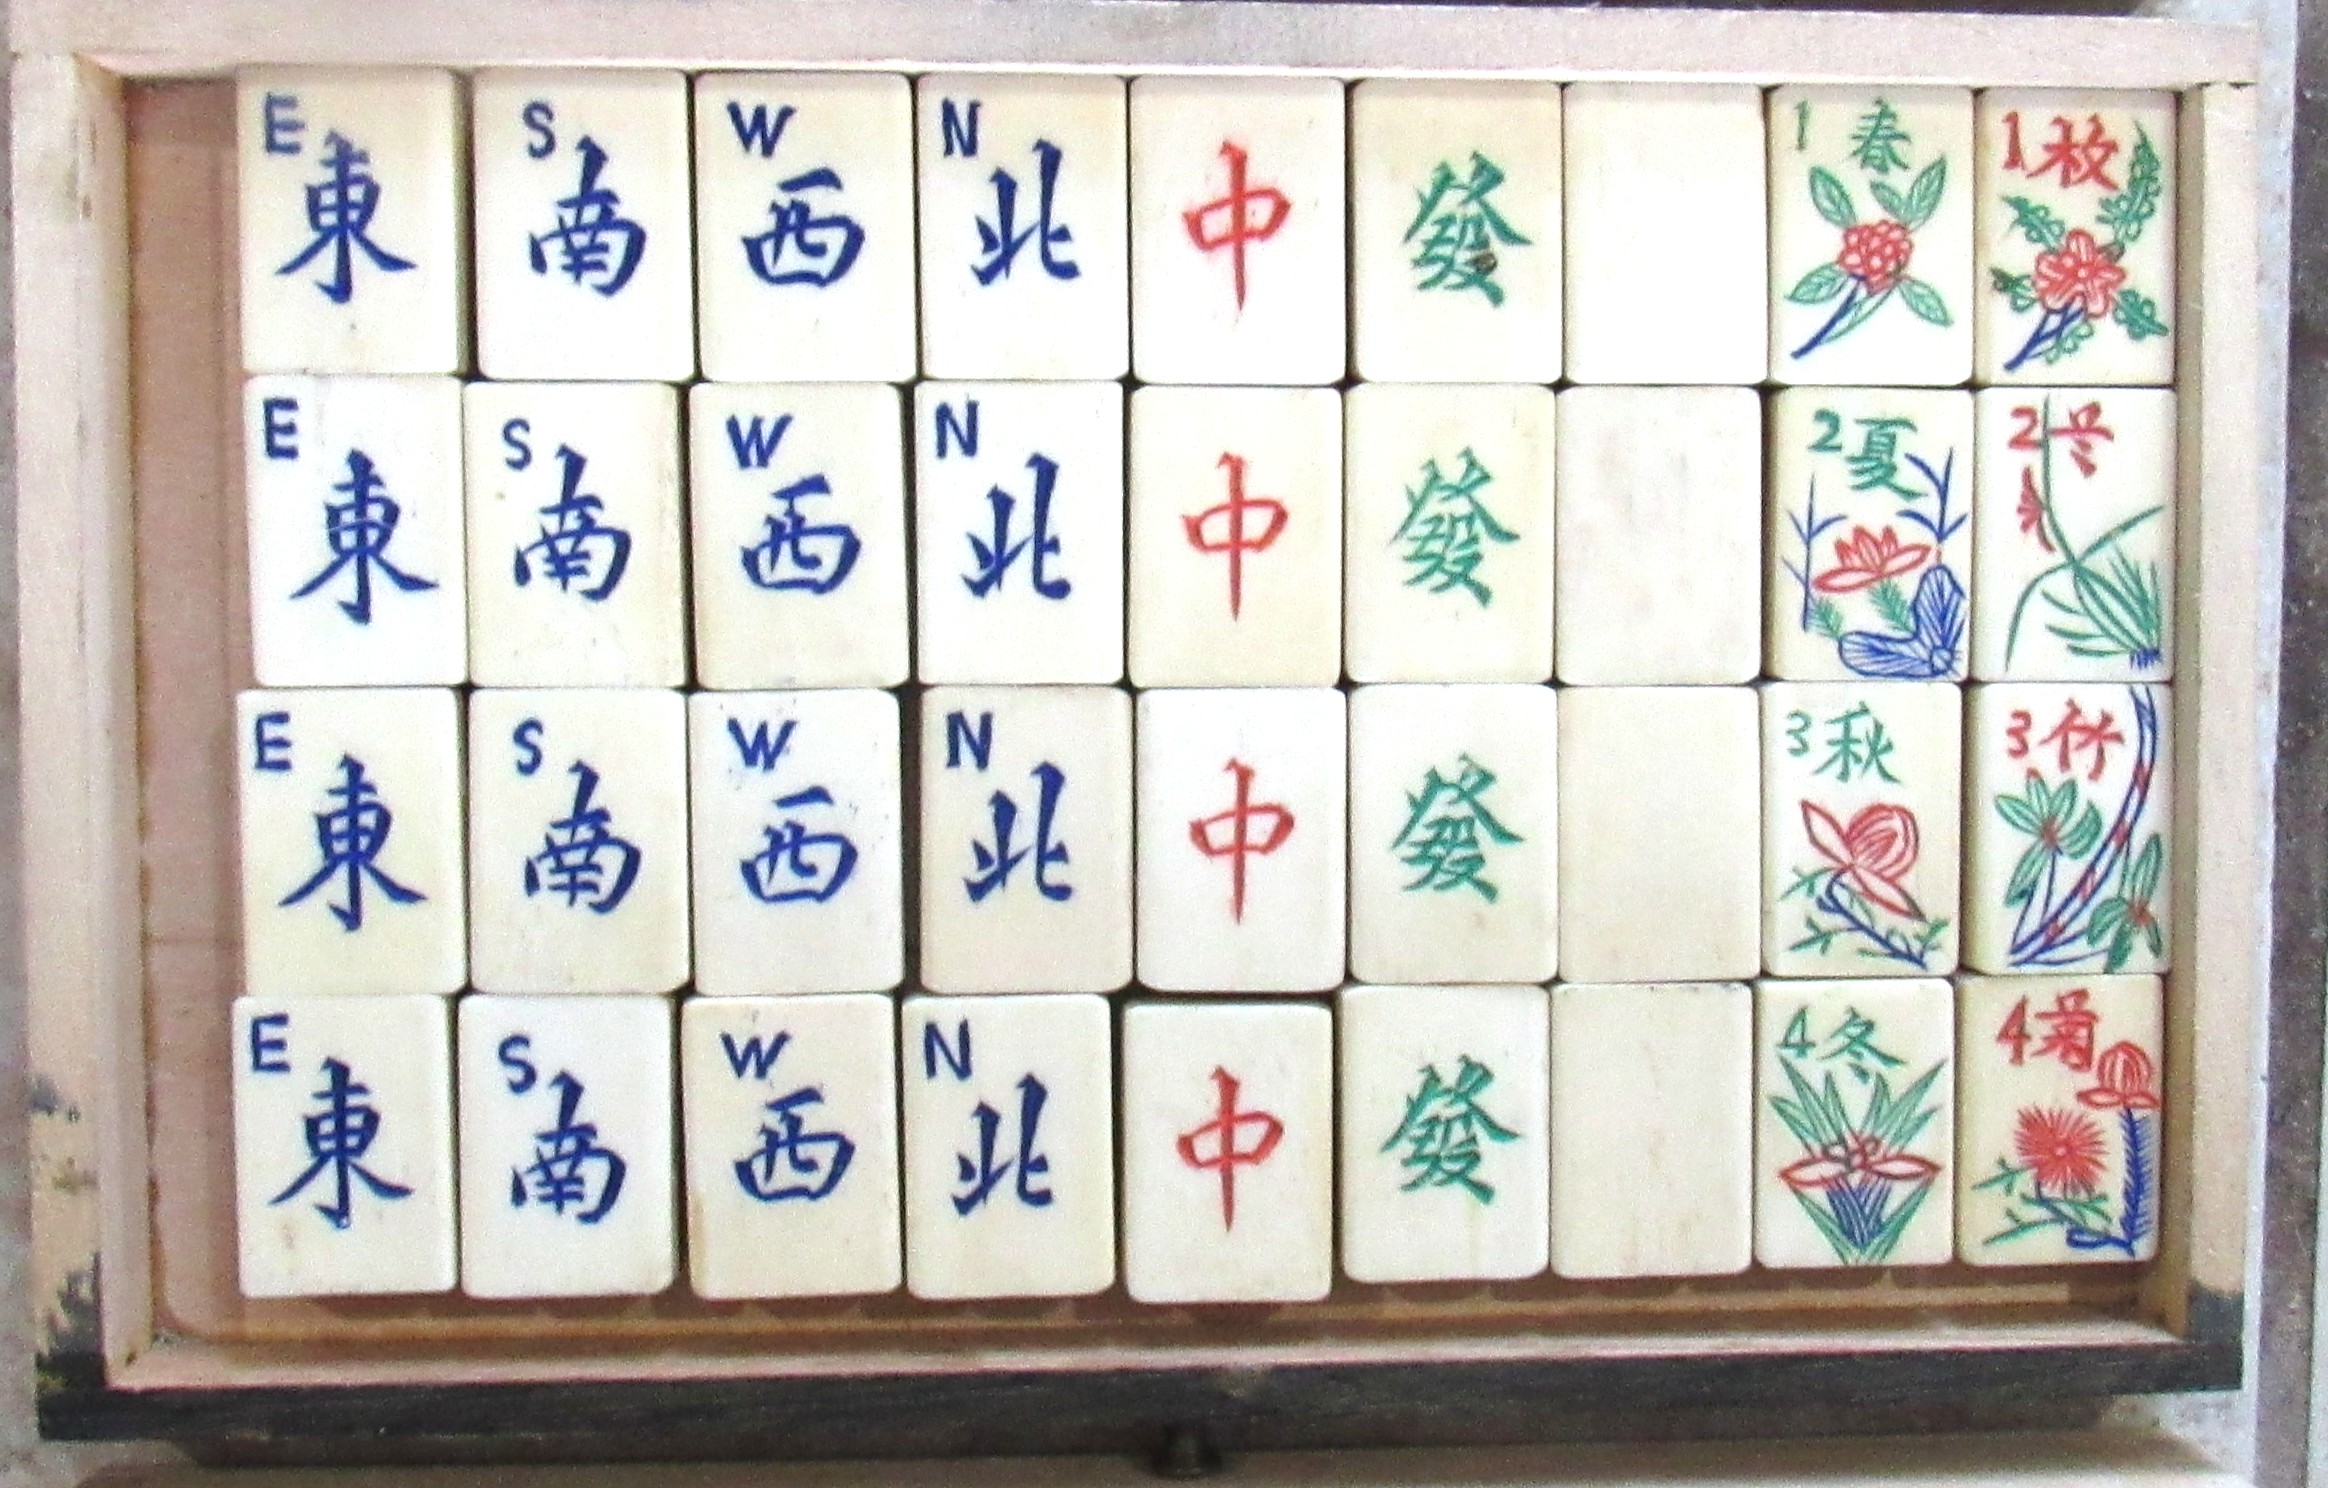 E 東 S 南 W 西 N 北 中 發 1 春 1 枚
E 東 S 南 W 西 N 北 中 發 2 夏 2
E 東 S 南 W 西 N 北 中 發 3 秋 3 竹
E 東 S 南 W 西 N 北 中 發 4 冬 4 菊